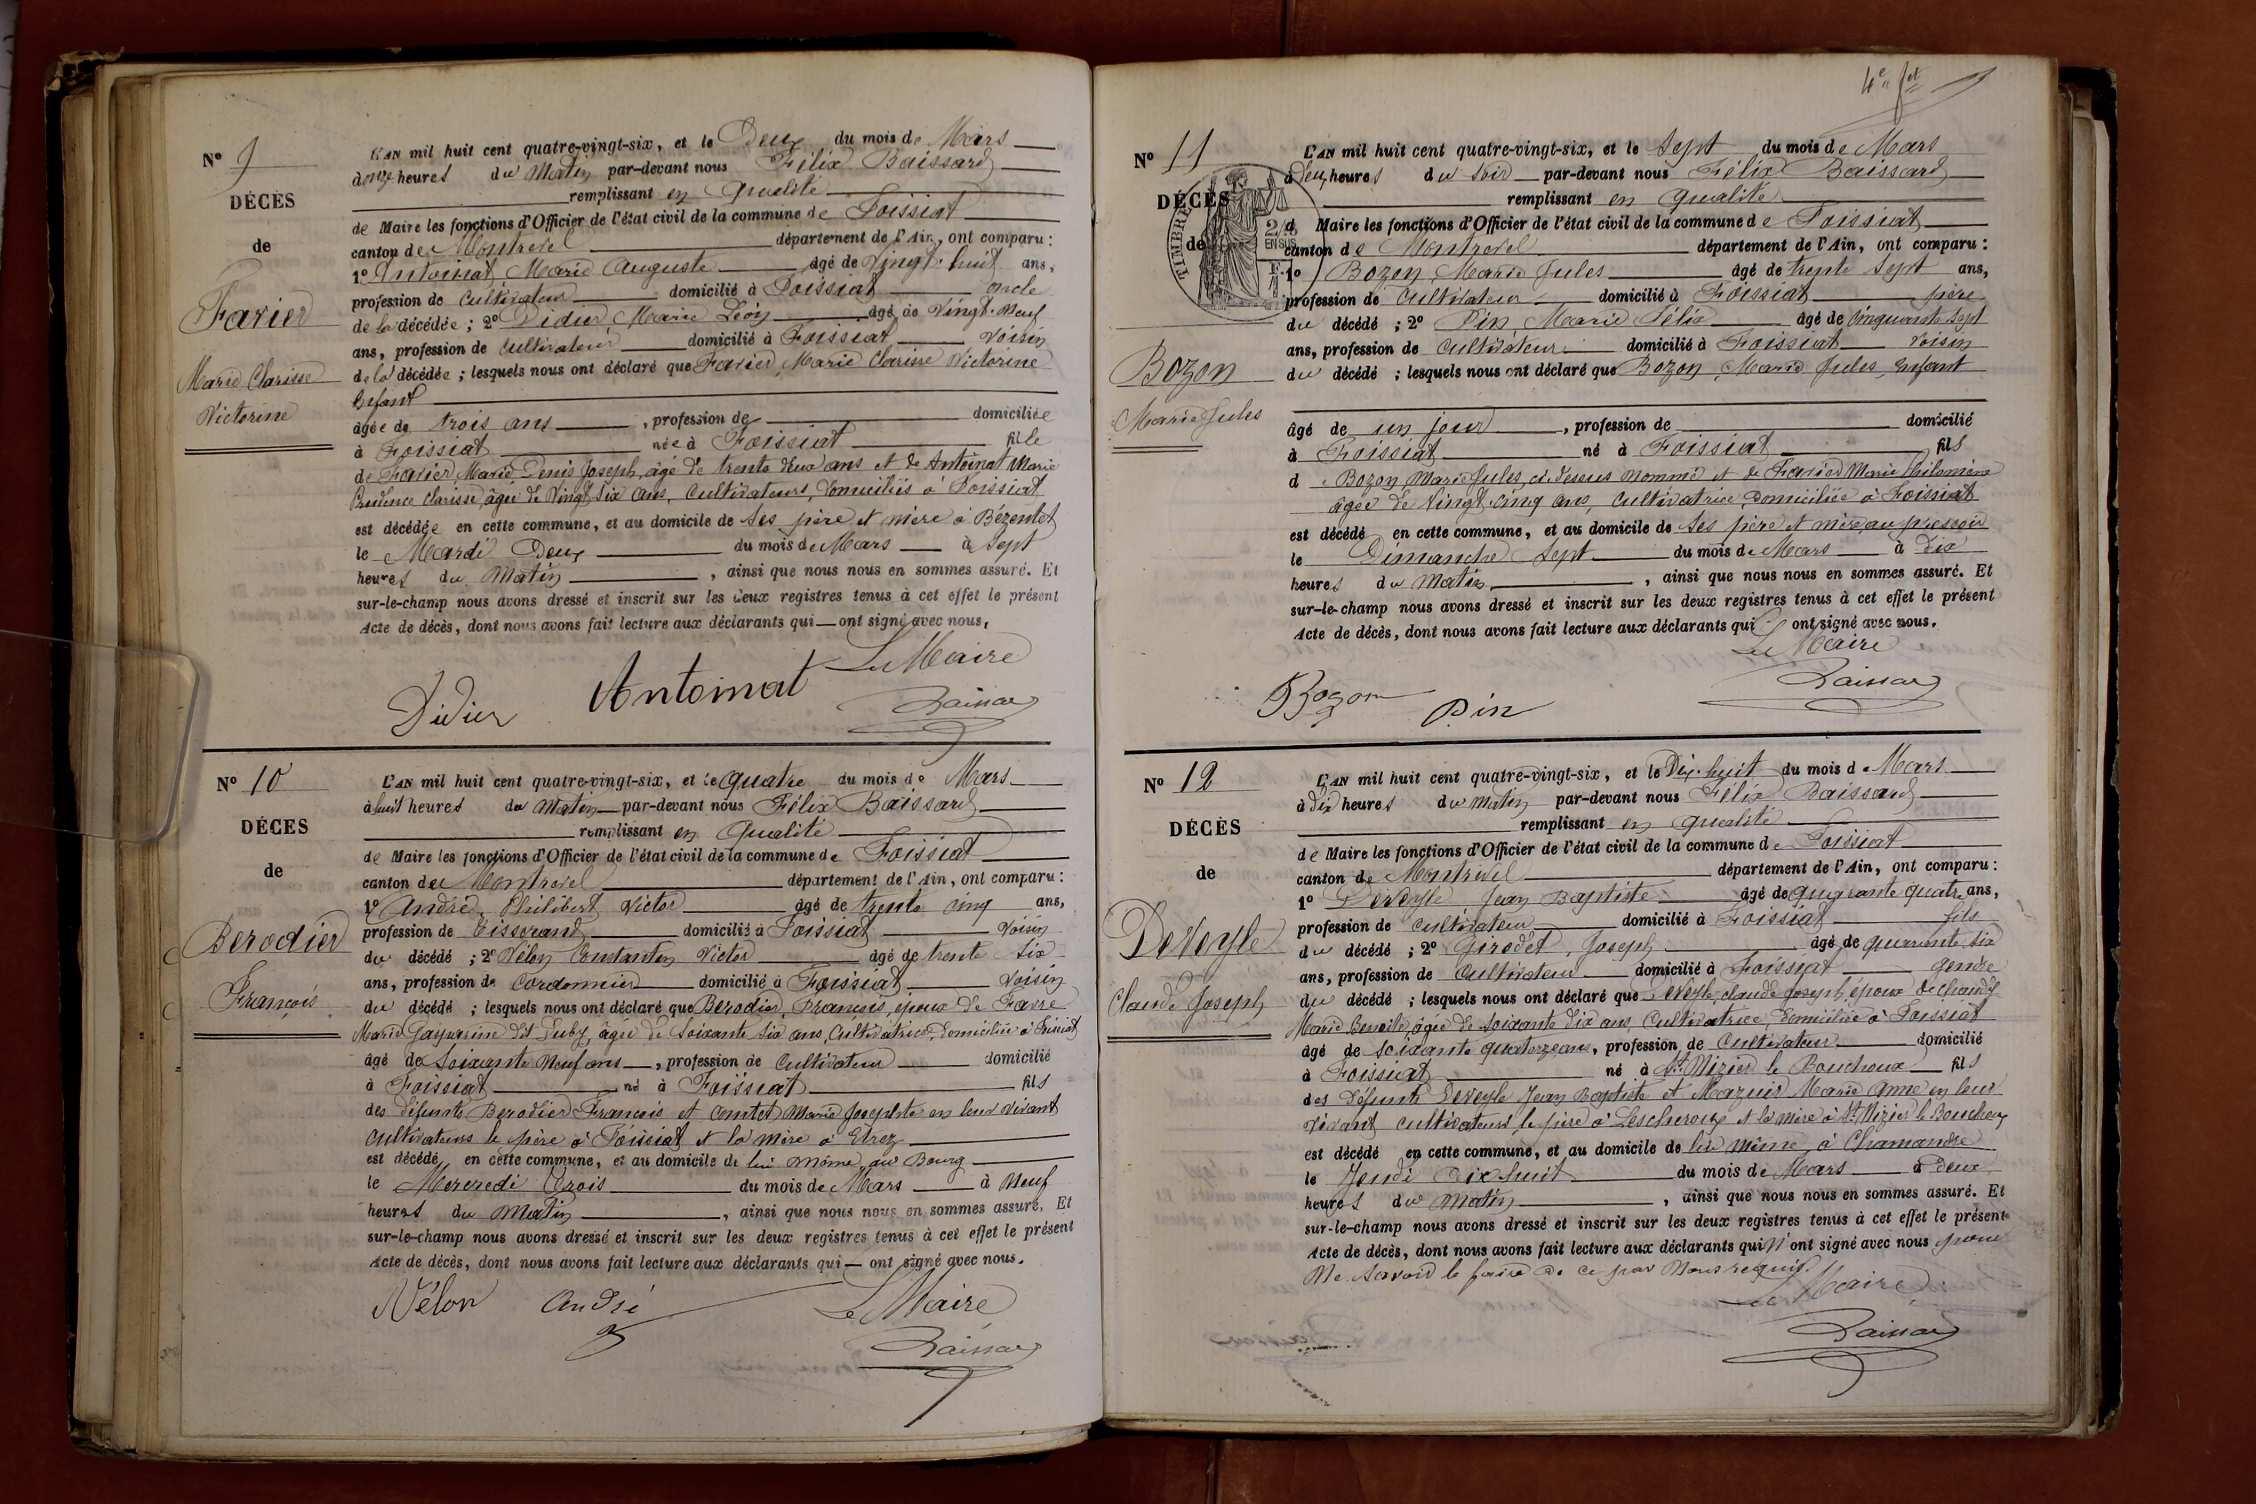 Nº 9
DÉCÈS
de
Favier
Marie Clarisse
Victorine
L'AN mil huit cent quatre-vingt-six, et le Deux du mois de Mars
à onze heures du Matin par-devant nous Félix Baissard
remplissant en qualité
de Maire les fonctions d'Officier de l'état civil de la commune de Foissiat
canton de Montrevel département de l'Ain, ont comparu :
1º Antoinat Marie Auguste âgé de Vingt-huit ans,
profession de Cultivateur domicilié à Foissiat oncle
de la décédée ; 2º Didier Marie Léon âgé de Vingt-Neuf
ans, profession de Cultivateur domicilié à Foissiat Voisin
de la décédée ; lesquels nous ont déclaré que Favier, Marie Clarisse Victorine
Enfant
âgée de trois ans, profession de domiciliée
à Foissiat née à Foissiat fille
de Favier Marie Denis Joseph, âgé de trente deux ans et de Antoinat Marie
Prudence Clarisse âgée de Vingt Six ans, Cultivateurs, Domiciliés à Foissiat
est décédée en cette commune, et au domicile de Ses père et mère à Bézentet
le Mardi Deux du mois de Mars à Sept
heures du Matin, ainsi que nous nous en sommes assuré. Et
sur-le-champ nous avons dressé et inscrit sur les deux registres tenus à cet effet le présent
Acte de décès, dont nous avons fait lecture aux déclarants qui ont signé avec nous.
Le Maire
Didier Antoinat Baissard
Nº 10
DÉCES
de
Berodier
François
L'AN mil huit cent quatre-vingt-six, et le quatre du mois de Mars
à huit heures du Matin par-devant nous Félix Baissard
remplissant en Qualité
de Maire les fonctions d'Officier de l'état civil de la commune de Foissiat
canton de Montrevel département de l'Ain, ont comparu :
1º André, Philibert Victor âgé de trente cinq ans,
profession de Tisserand domicilié à Foissiat Voisin
du décédé ; 2º Vélon Constantin Victor âgé de trente Six
ans, profession de Cordonnier domicilié à Foissiat Voisin
du décédé ; lesquels nous ont déclaré que Berodier, François, époux de Favre
Marie âgée de Soixante Six ans, Cultivatrice, Domiciliée à Foissiat
âgé de Soixante Neuf ans, profession de Cultivateur domicilié
à Foissiat né à Foissiat fils
des défunts Berodier François et Comtet Marie Josephte en leur Vivant
Cultivateurs le père à Foissiat et la mère à Etrez
est décédé en cette commune, et au domicile de lui même, au Bourg
le Mercredi Trois du mois de Mars à Neuf
heures du Matin, ainsi que nous nous en sommes assuré. Et
sur-le-champ nous avons dressé et inscrit sur les deux registres tenus à cet effet le présent
Acte de décès, dont nous avons fait lecture aux déclarants qui ont signé avec nous.
Vélon André Le Maire
Baissard
4e fet
Nº 11
DÉCÈS
de
TIMBRE
2/10
EN SUS
Bozon
Marie Jules
L'AN mil huit cent quatre-vingt-six, et le Sept du mois de Mars
à Deux heures du Soir par-devant nous Félix Baissard
remplissant en qualité
d Maire les fonctions d'Officier de l'état civil de la commune de Foissiat
canton de Montrevel département de l'Ain, ont comparu :
1º Bozon Marie Jules âgé de trente Sept ans,
profession de Cultivateur domicilié à Foissiat père
du décédé ; 2º Pin Marie Félix âgé de Cinquante Sept
ans, profession de Cultivateur domicilié à Foissiat Voisin
du décédé ; lesquels nous ont déclaré que Bozon, Marie Jules, Enfant
âgé de un jour, profession de domicilié
à Foissiat né à Foissiat fils
de Bozon Marie Jules, ci-dessus Nommé et de Favier Marie Philomène
âgée de Vingt cinq ans, Cultivatrice, Domiciliée à Foissiat
est décédé en cette commune, et au domicile de Ses père et mère, au pressoir
le Dimanche Sept du mois de Mars à Dix
heures du Matin, ainsi que nous nous en sommes assuré. Et
sur-le-champ nous avons dressé et inscrit sur les deux registres tenus à cet effet le présent
Acte de décès, dont nous avons fait lecture aux déclarants qui ont signé avec nous.
Le Maire
Bozon Pin Baissard
Nº 12
DÉCÈS
de
DeVeyle
Claude Joseph
L'AN mil huit cent quatre-vingt-six, et le Dix-huit du mois de Mars
à Dix heures du Matin par-devant nous Félix Baissard
remplissant en qualité
de Maire les fonctions d'Officier de l'état civil de la commune de Foissiat
canton de Montrevel département de l'Ain, ont comparu :
1º DeVeyle Jean Baptiste âgé de quarante quatre ans,
profession de Cultivateur domicilié à Foissiat fils
du décédé ; 2º Girodet, Joseph âgé de quarante Six
ans, profession de Cultivateur domicilié à Foissiat gendre
du décédé ; lesquels nous ont déclaré que DeVeyle, Claude Joseph, époux de Chandy
Marie Benoite, âgée de Soixante Dix ans, Cultivatrice, Domiciliée à Foissiat
âgé de Soixante quatorze ans, profession de Cultivateur domicilié
à Foissiat né à St Nizier le Bouchoux fils
des Défunts DeVeyle Jean Baptiste et Mazuir Marie Anne en leur
Vivant Cultivateurs, le père à Lescheroux et la mère à St Nizier le Bouchoux
est décédé en cette commune, et au domicile de lui même, à Chamandre
le Jeudi Dix-huit du mois de Mars à Deux
heures du Matin, ainsi que nous nous en sommes assuré. Et
sur-le-champ nous avons dressé et inscrit sur les deux registres tenus à cet effet le présent
Acte de décès, dont nous avons fait lecture aux déclarants qui N'ont signé avec nous pour
Ne Savoir le faire de ce par Nous requis.
Le Maire
Baissard